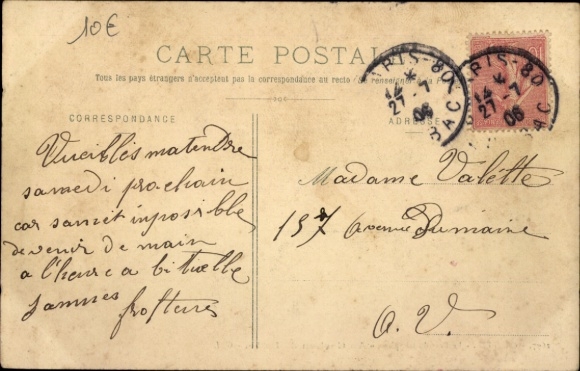 10€
CARTE POSTALE
Tous les pays étrangers n'acceptent pas la correspondance au recto
CORRESPONDANCE
ADRESSE
PARIS-80
27-7
06
BAC
PARIS-80
27-7
06
BAC
Vueilles matendre
samedi prochain
car sanset inposible
de venir de main
a l'heure a bituelle
Madame Valette
157 Avenue Dumaine
O. V.